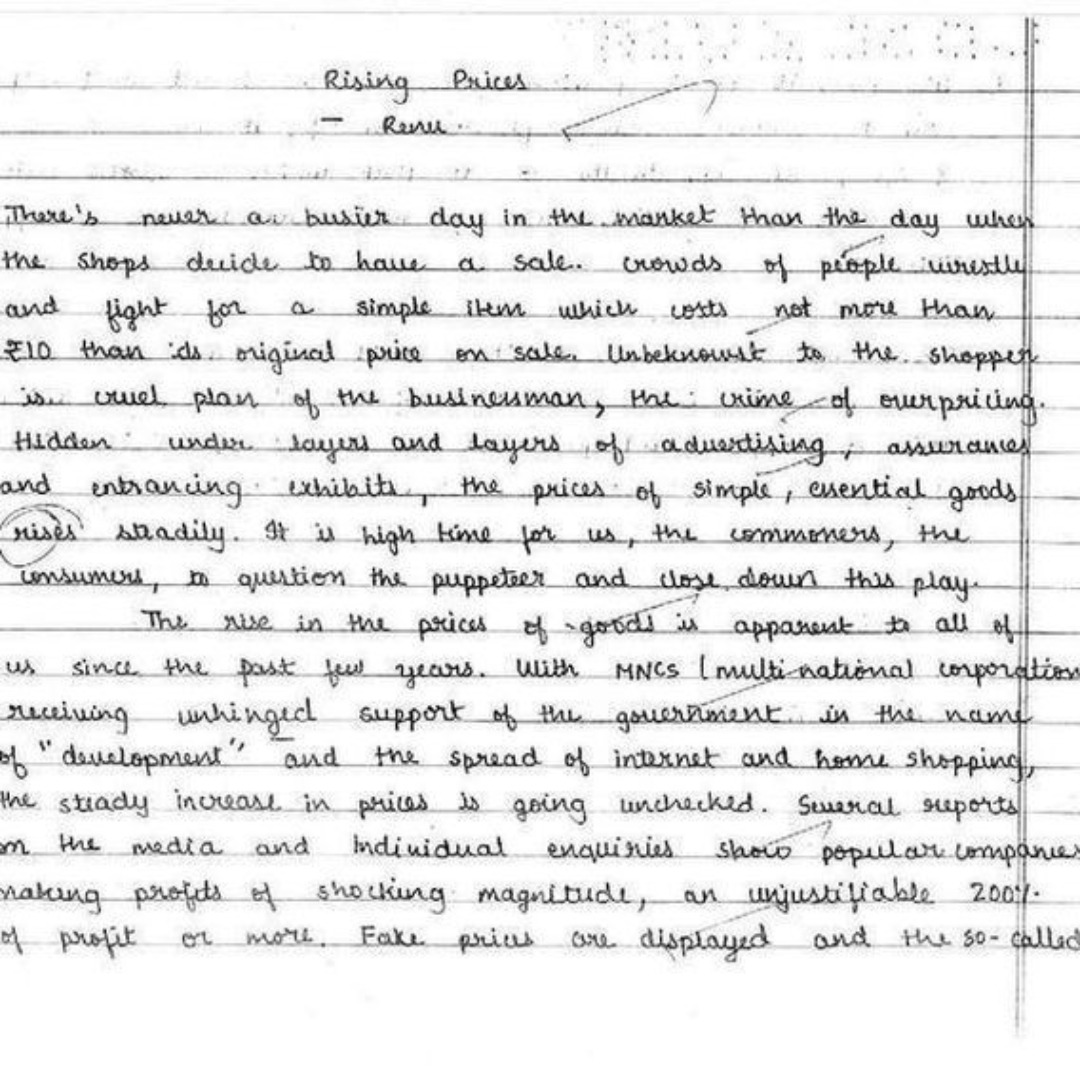 Rising Prices
- Renu
There's never a busier day in the market than the day when
the shops decide to have a sale. crowds of people wrestle
and fight for a simple item which costs not more than
₹10 than its original price on sale. Unbeknowst to the shopper
is cruel plan of the businessman, the crime of overpricing.
Hidden under layers and layers of advertising, assurances
and entrancing exhibits, the prices of simple, esential goods
rises steadily. It is high time for us, the commoners, the
consumers, to question the puppeteer and close down this play.
The rise in the prices of goods is apparent to all of
us since the past few years. With MNCS (multi national corporation
receiving unhinged support of the government in the name
of "development" and the spread of internet and home shopping,
the steady increase in prices is going unchecked. Several reports
on the media and individual enquiries show popular companies
making profits of shocking magnitude, an unjustifiable 200%.
of profit or more. Fake prices are displayed and the so-called